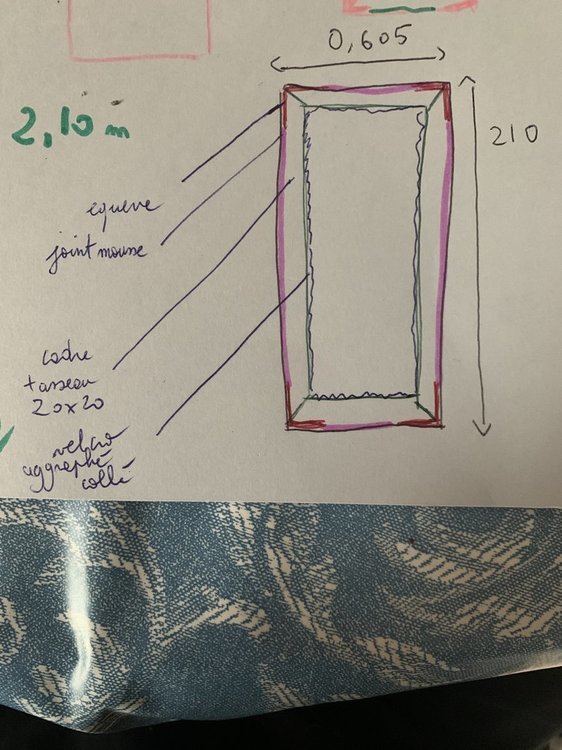 0,605
2,10 m
210
equeve
joint mousse
cadre
tasseau
20x20
velcro
aggraphé
collé